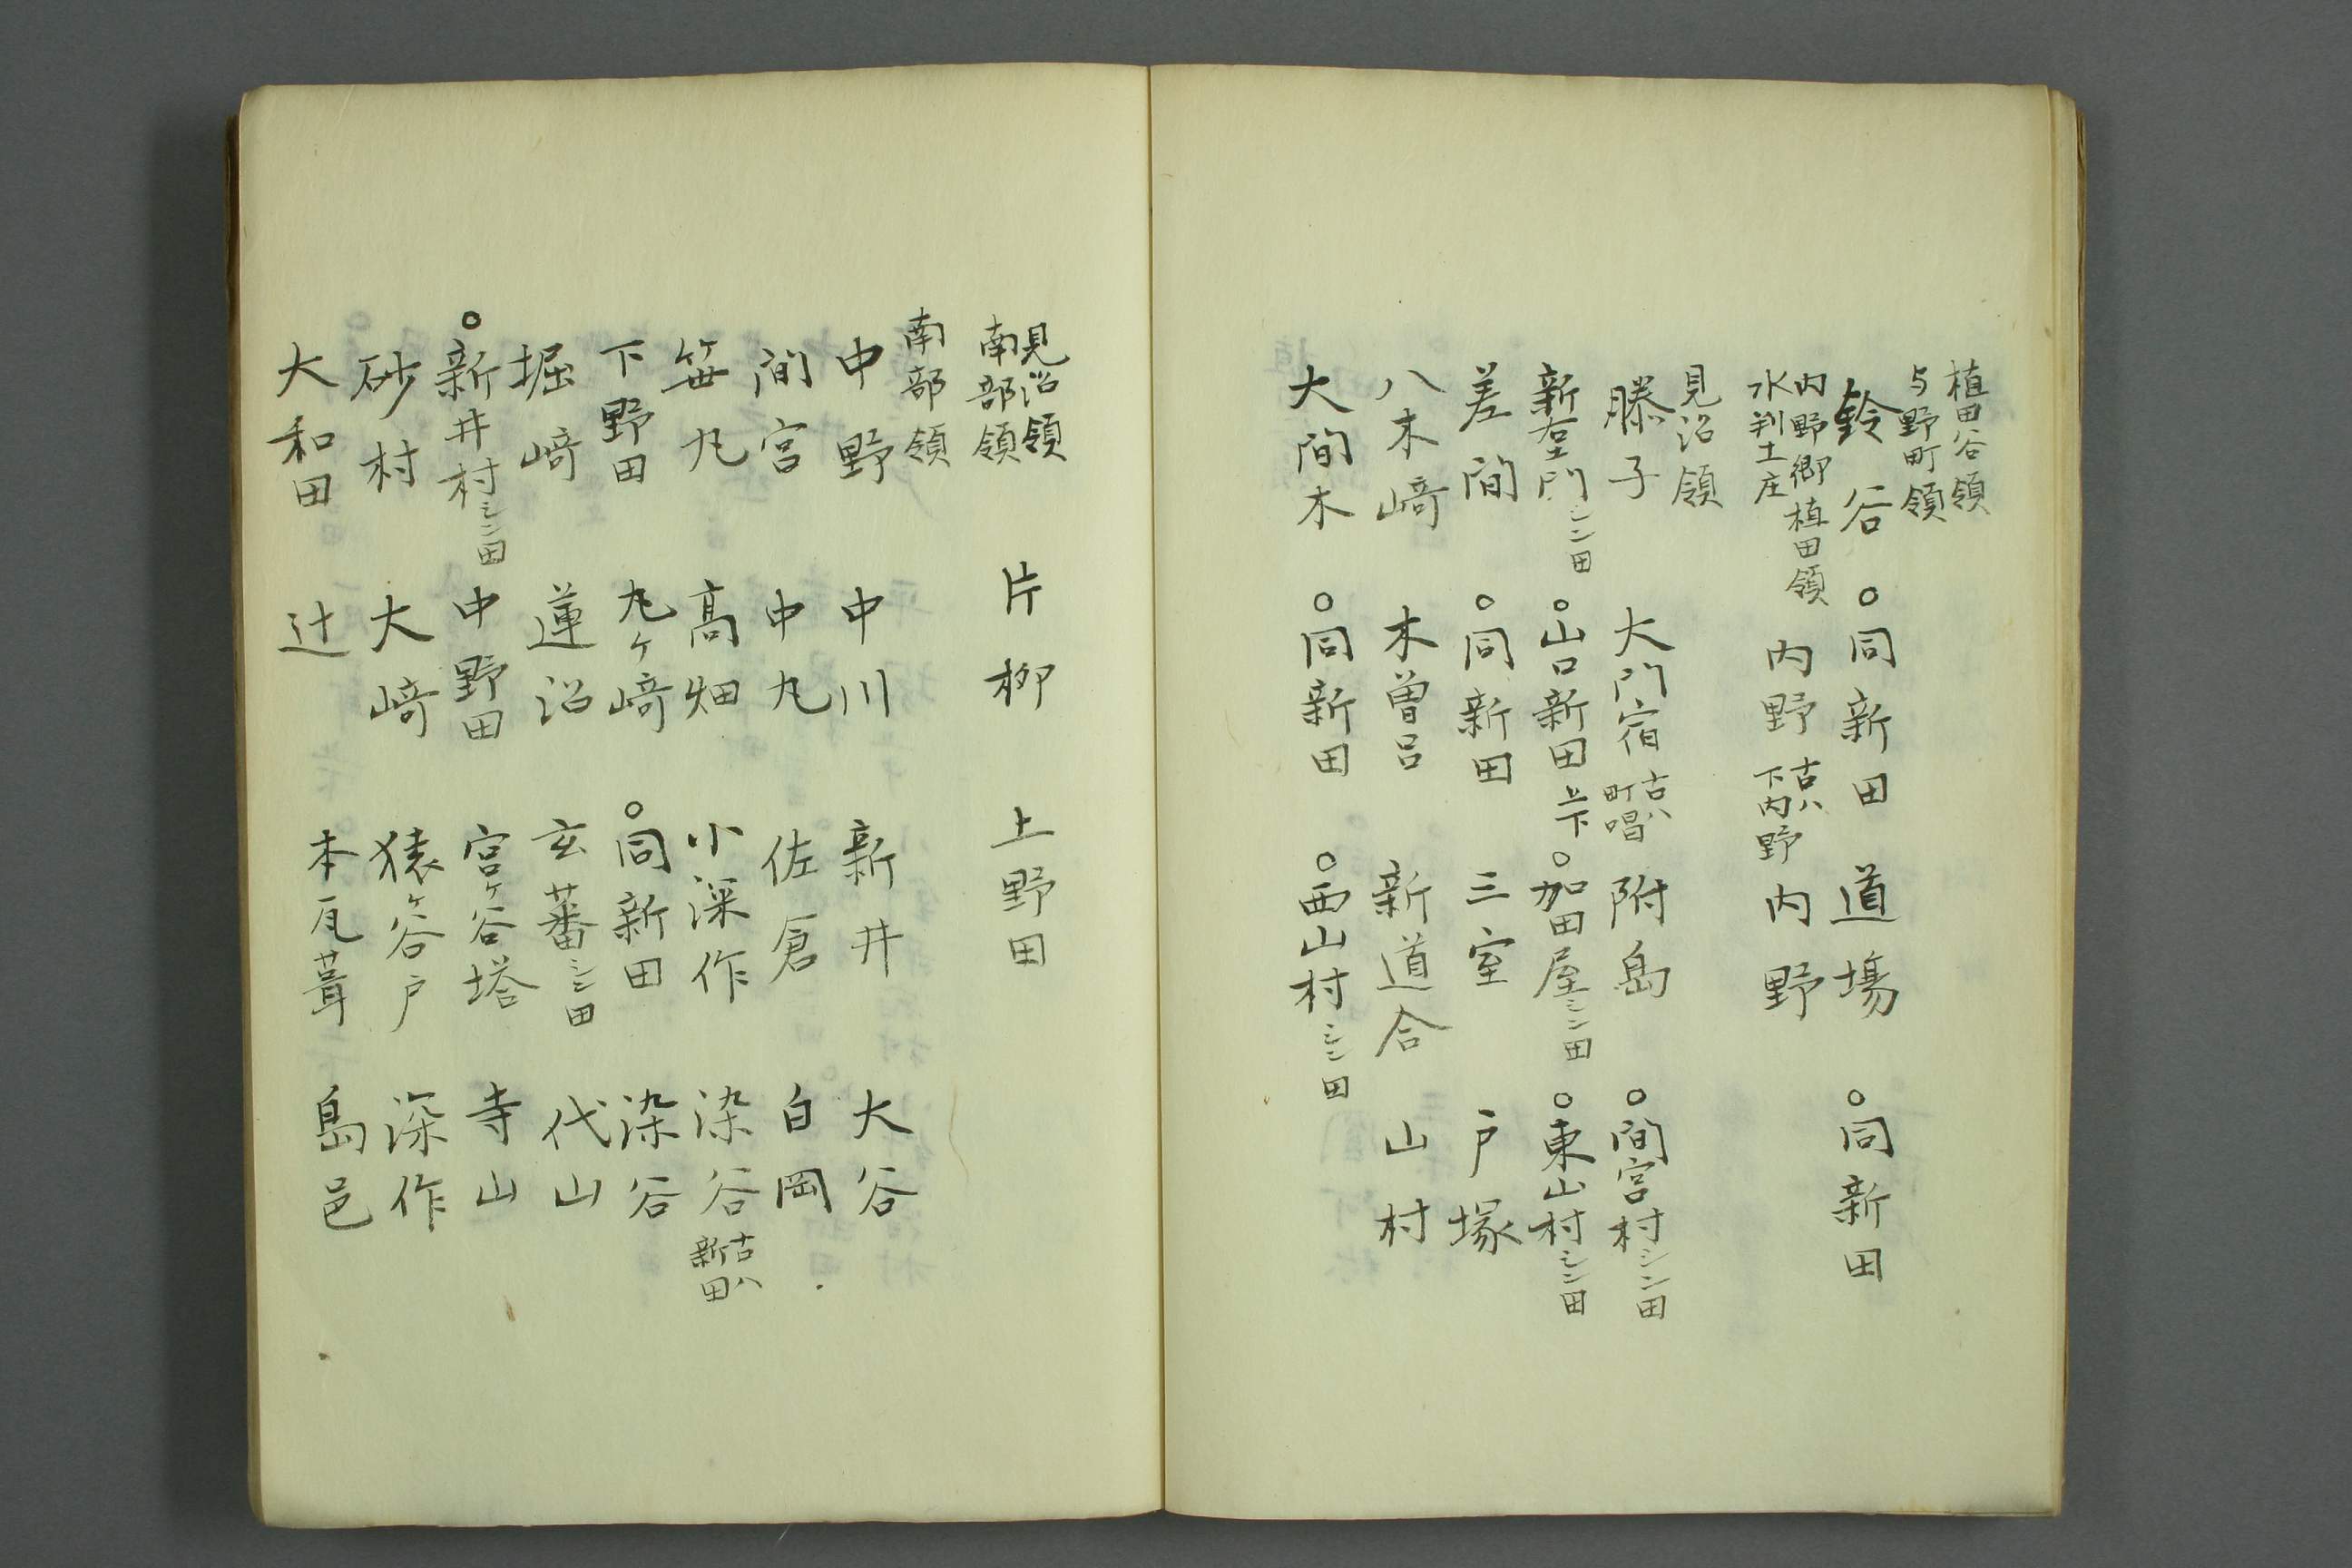 植田谷領
与野町領
鈴谷 ○同新田 道場 ○同新田
内野郷植田領
水判土庄
内野 古ハ下内野 内野
見沼領
膝子 大門宿 古ハ町唱 附島 ○間宮村シン田
新右エ門シン田 ○山口新田 上下 ○加田屋シン田 ○東山村シン田
差間 ○同新田 三室 戸塚
八木﨑 木曽呂 新道合 山村
大間木 ○同新田 ○西山村シン田
見沼領
南部領
片柳 上野田
南部領
中野 中川 新井 大谷
間宮 中丸 佐倉 白岡
笹丸 髙畑 小深作 染谷 古ハ新田
下野田 丸ヶ﨑 ○同新田 染谷
堀﨑 蓮沼 玄蕃シン田 代山
○新井村シン田 中野田 宮ヶ谷塔 寺山
砂村 大﨑 猿ヶ谷戸 深作
大和田 辻 本瓦葺 島邑